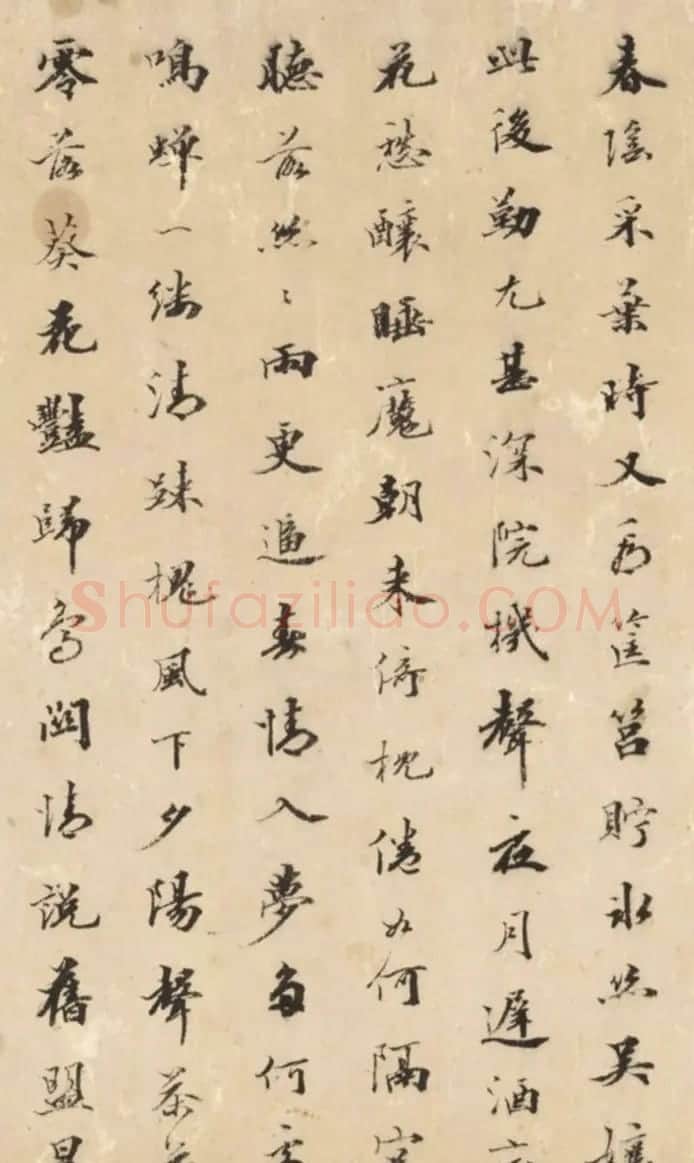 春陰采葉時又為筐筥貯冰絲吳孃
此後勤尤甚深院機聲夜月遲酒
花愁釀睡魔朝來倚枕倦如何隔
聽蕉絲〻雨更遍春情入夢多何
鳴蟬一縷清疎槐風下夕陽聲茶
零落葵花豔歸鳥關情說舊盟
Shufaziliao.COM